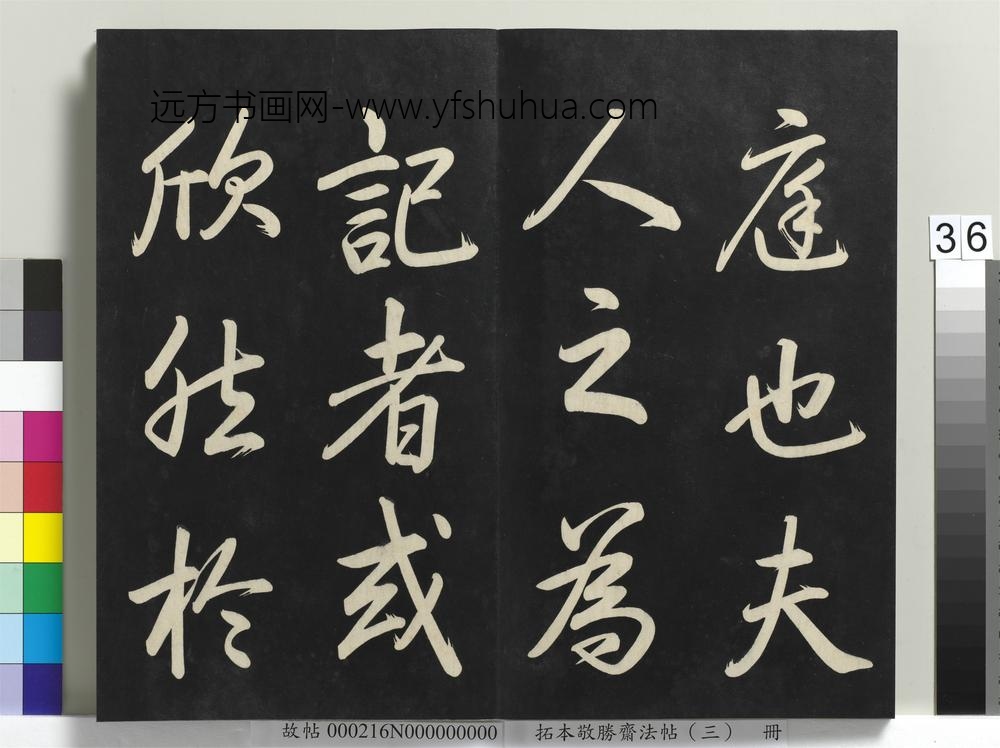 远方书画网-www.yfshuhua.com
庭也夫
人之為
記者或
欣然於
36
故帖 000216N000000000
拓本敬勝齋法帖（三） 冊